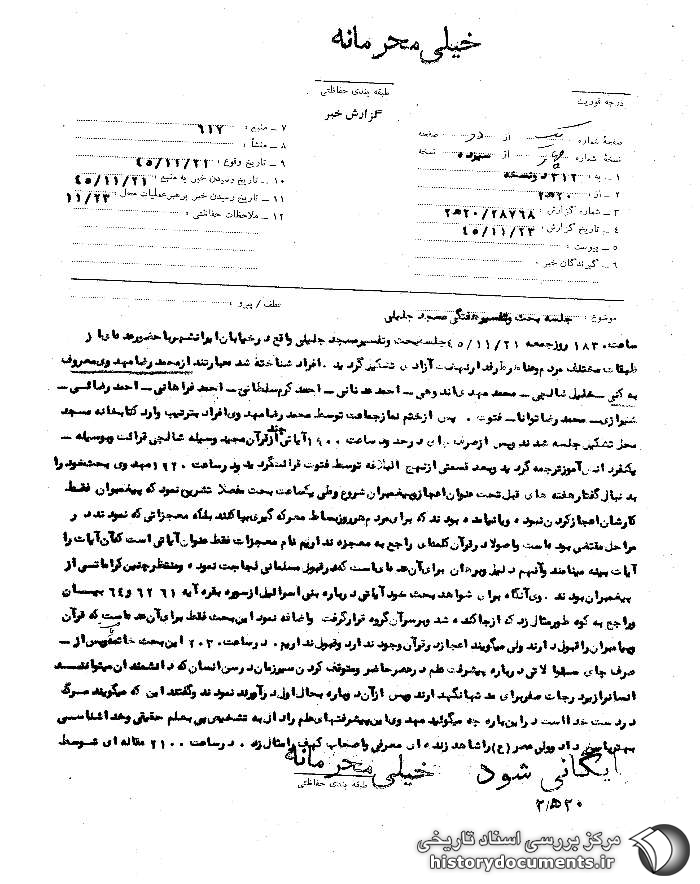 خیلی محرمانه
طبقه بندی حفاظتی
گزارش خبر
درجه فوریت
صفحهٔ شماره یک از در صفحه
نسخهٔ شماره چهار از سیزده نسخه
۱ ـ به : ۳۱۲ دونسخه
۲ ـ از : ۲۰ﻫ۲
۳ ـ شماره گزارش : ۲۰/۲۸۷۶۸ﻫ۲
۴ ـ تاریخ گزارش : ۴۵/۱۱/۲۳
۵ ـ پیوست :
۶ ـ گیرندگان خبر :
۷ ـ منبع : ۶۱۷
۸ ـ منشأ :
۹ ـ تاریخ وقوع : ۴۵/۱۱/۲۱
۱۰ ـ تاریخ رسیدن خبر به منبع : ۴۵/۱۱/۲۱
۱۱ ـ تاریخ رسیدن خبر برهبر عملیات محل : ۱۱/۲۳
۱۲ ـ ملاحظات حفاظتی :
عطف / پیرو :
موضوع : جلسه بحث وتفسیر هفتگی مسجد جلیلی
ساعت ۱۸۳۰ روز جمعه ۴۵/۱۱/۲۱ جلسه بحث وتفسیر مسجد جلیلی واقع در خیابان ایرانشهر با حضور عده ای از
طبقات مختلف مردم تشکیل گردید . افراد شناخته شده عبارتند از محمد رضا مهدوی معروف
به کنی ـ خلیل شالچی ـ محمد مهدی ـ احمد عدنانی ـ احمد کرم سلطانی ـ احمد فراهانی ـ احمد رضائی ـ
شیرازی ـ محمد رضا توانا ـ فتوت . پس از ختم نماز جماعت توسط محمد رضا مهدوی افراد بترتیب وارد کتابخانه مسجد
محل تشکیل جلسه شدند وپس از صرف چای در حدود ساعت ۱۹۰۰ آیاتی چند از قرآن مجید وسیله شالچی قرائت وبوسیله ـ
یکنفر دانش آموز ترجمه گردید وبعد قسمتی از نهج البلاغه توسط فتوت قرائت گردید ودر ساعت ۱۹۲۰ مهدوی بحث خود را
به دنبال گفتار هفته های قبل تحت عنوان اعجاز پیغمبران شروع وطی یکساعت بحث مفصلا تشریح نمود که پیغمبران فقط
کارشان اعجاز کردن نبوده ویا نیامده بودند که برای مردم هر روز بساط معرکه گیری بپا کنند بلکه معجزاتی که نمودند در
مراحل مقتضی بوده است واصولا در قرآن کلمه ای راجع به معجزه نداریم نام معجزات فقط عنوان آیاتی است که آن آیات را
آیات بینه مینامند وآنهم دلیل وبرهان برای آن عده ایست که در قبول مسلمانی لجاجت نموده ومنتظر چنین کراماتی از
پیغمبران بودند . وی آنگاه برای شواهد بحث خود آیاتی درباره بنی اسرائیل از سوره بقره آیه ۶۱ ۶۲ و ۶۴ بیان
وراجع به کوه طور مثال زد که از جا کنده شد وبر سر آن گروه قرار گرفت واضافه نمود این بحث فقط برای آن عده ایست که قرآن
وپیامبران را قبول دارند ولی میگویند اعجاز در قرآن وجود ندارد وقبول نداریم . در ساعت ۲۰۳۰ این بحث خاتمه وپس از ـ
صرف چای سئوالاتی درباره پیشرفت علم در عصر حاضر ومتوقف کردن سیر زمان در سن انسان که دانشمندان میتوانند
انسانرا زیر درجات صفر برای مدتها نگهدارند وپس از آن دوباره بحال اول درآورند نمودند وگفتند این که میگویند مرگ
در دست خدا است در این باره چه میگوئید مهدوی این پیشرفتهای علم را دال به تشخیص پی بعلم حقیقی وخداشناسی
بهتر پاسخ داد وولی عصر (ع) را شاهد زنده ای معرفی واصحاب کهف را مثال زد . در ساعت ۲۱۰۰ مقاله ای توسط
بایگانی شود
۲۰ﻫ۲
خیلی محرمانه
طبقه بندی حفاظتی
مرکز بررسی اسناد تاریخی
historydocuments.ir